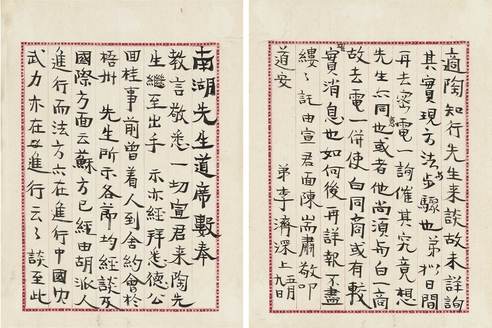 南湖先生道席數奉
教言敬悉一切宣君来陶先
生繼至出手 示亦經拜悉德公
回桂事前曾着人到舍約會於
梧州 先生所示各節均經談及
國際方面云蘇方已經由胡派人
進行而法方亦在進行中國内
武力亦在進行云々談至此
適陶知行先生来談故未詳詢
其實現方法步驟也弟擬日間
再去密電一詢催其究竟想
先生亦同意也或者他尚須與白一商
故去電一併使白同商或有較
實消息也如何後再詳報不盡
縷々託由宣君面陳耑肅敬叩
道安
弟李濟深上